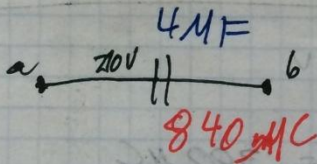 4MF
a 210V b
840 MC